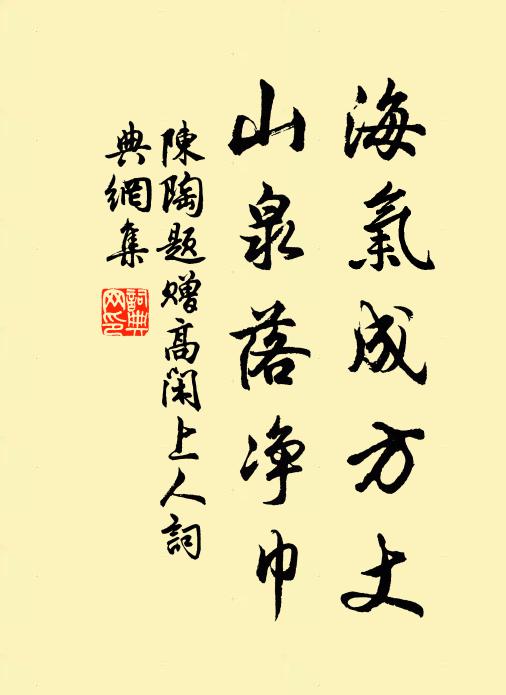 海氣成方丈
山泉落淨巾
陳陶題贈高閑上人詞
典網集
詞典網印